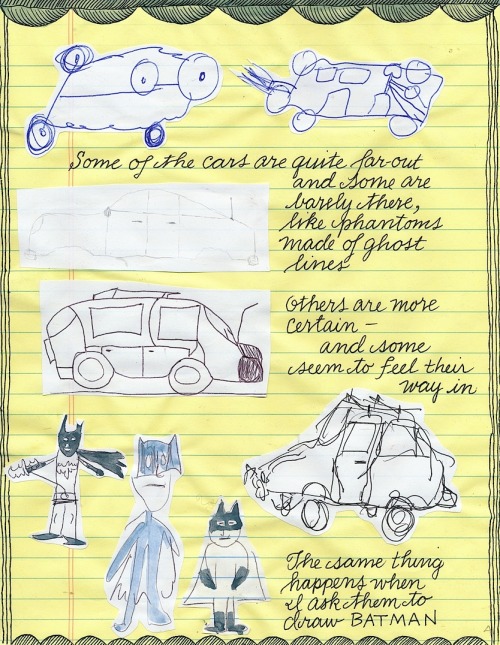 Some of the cars are quite far-out
and some are
barely there,
like phantoms
made of ghost
lines
Others are more
certain –
and some
seem to feel their
way in
The same thing
happens when
I ask them to
draw BATMAN